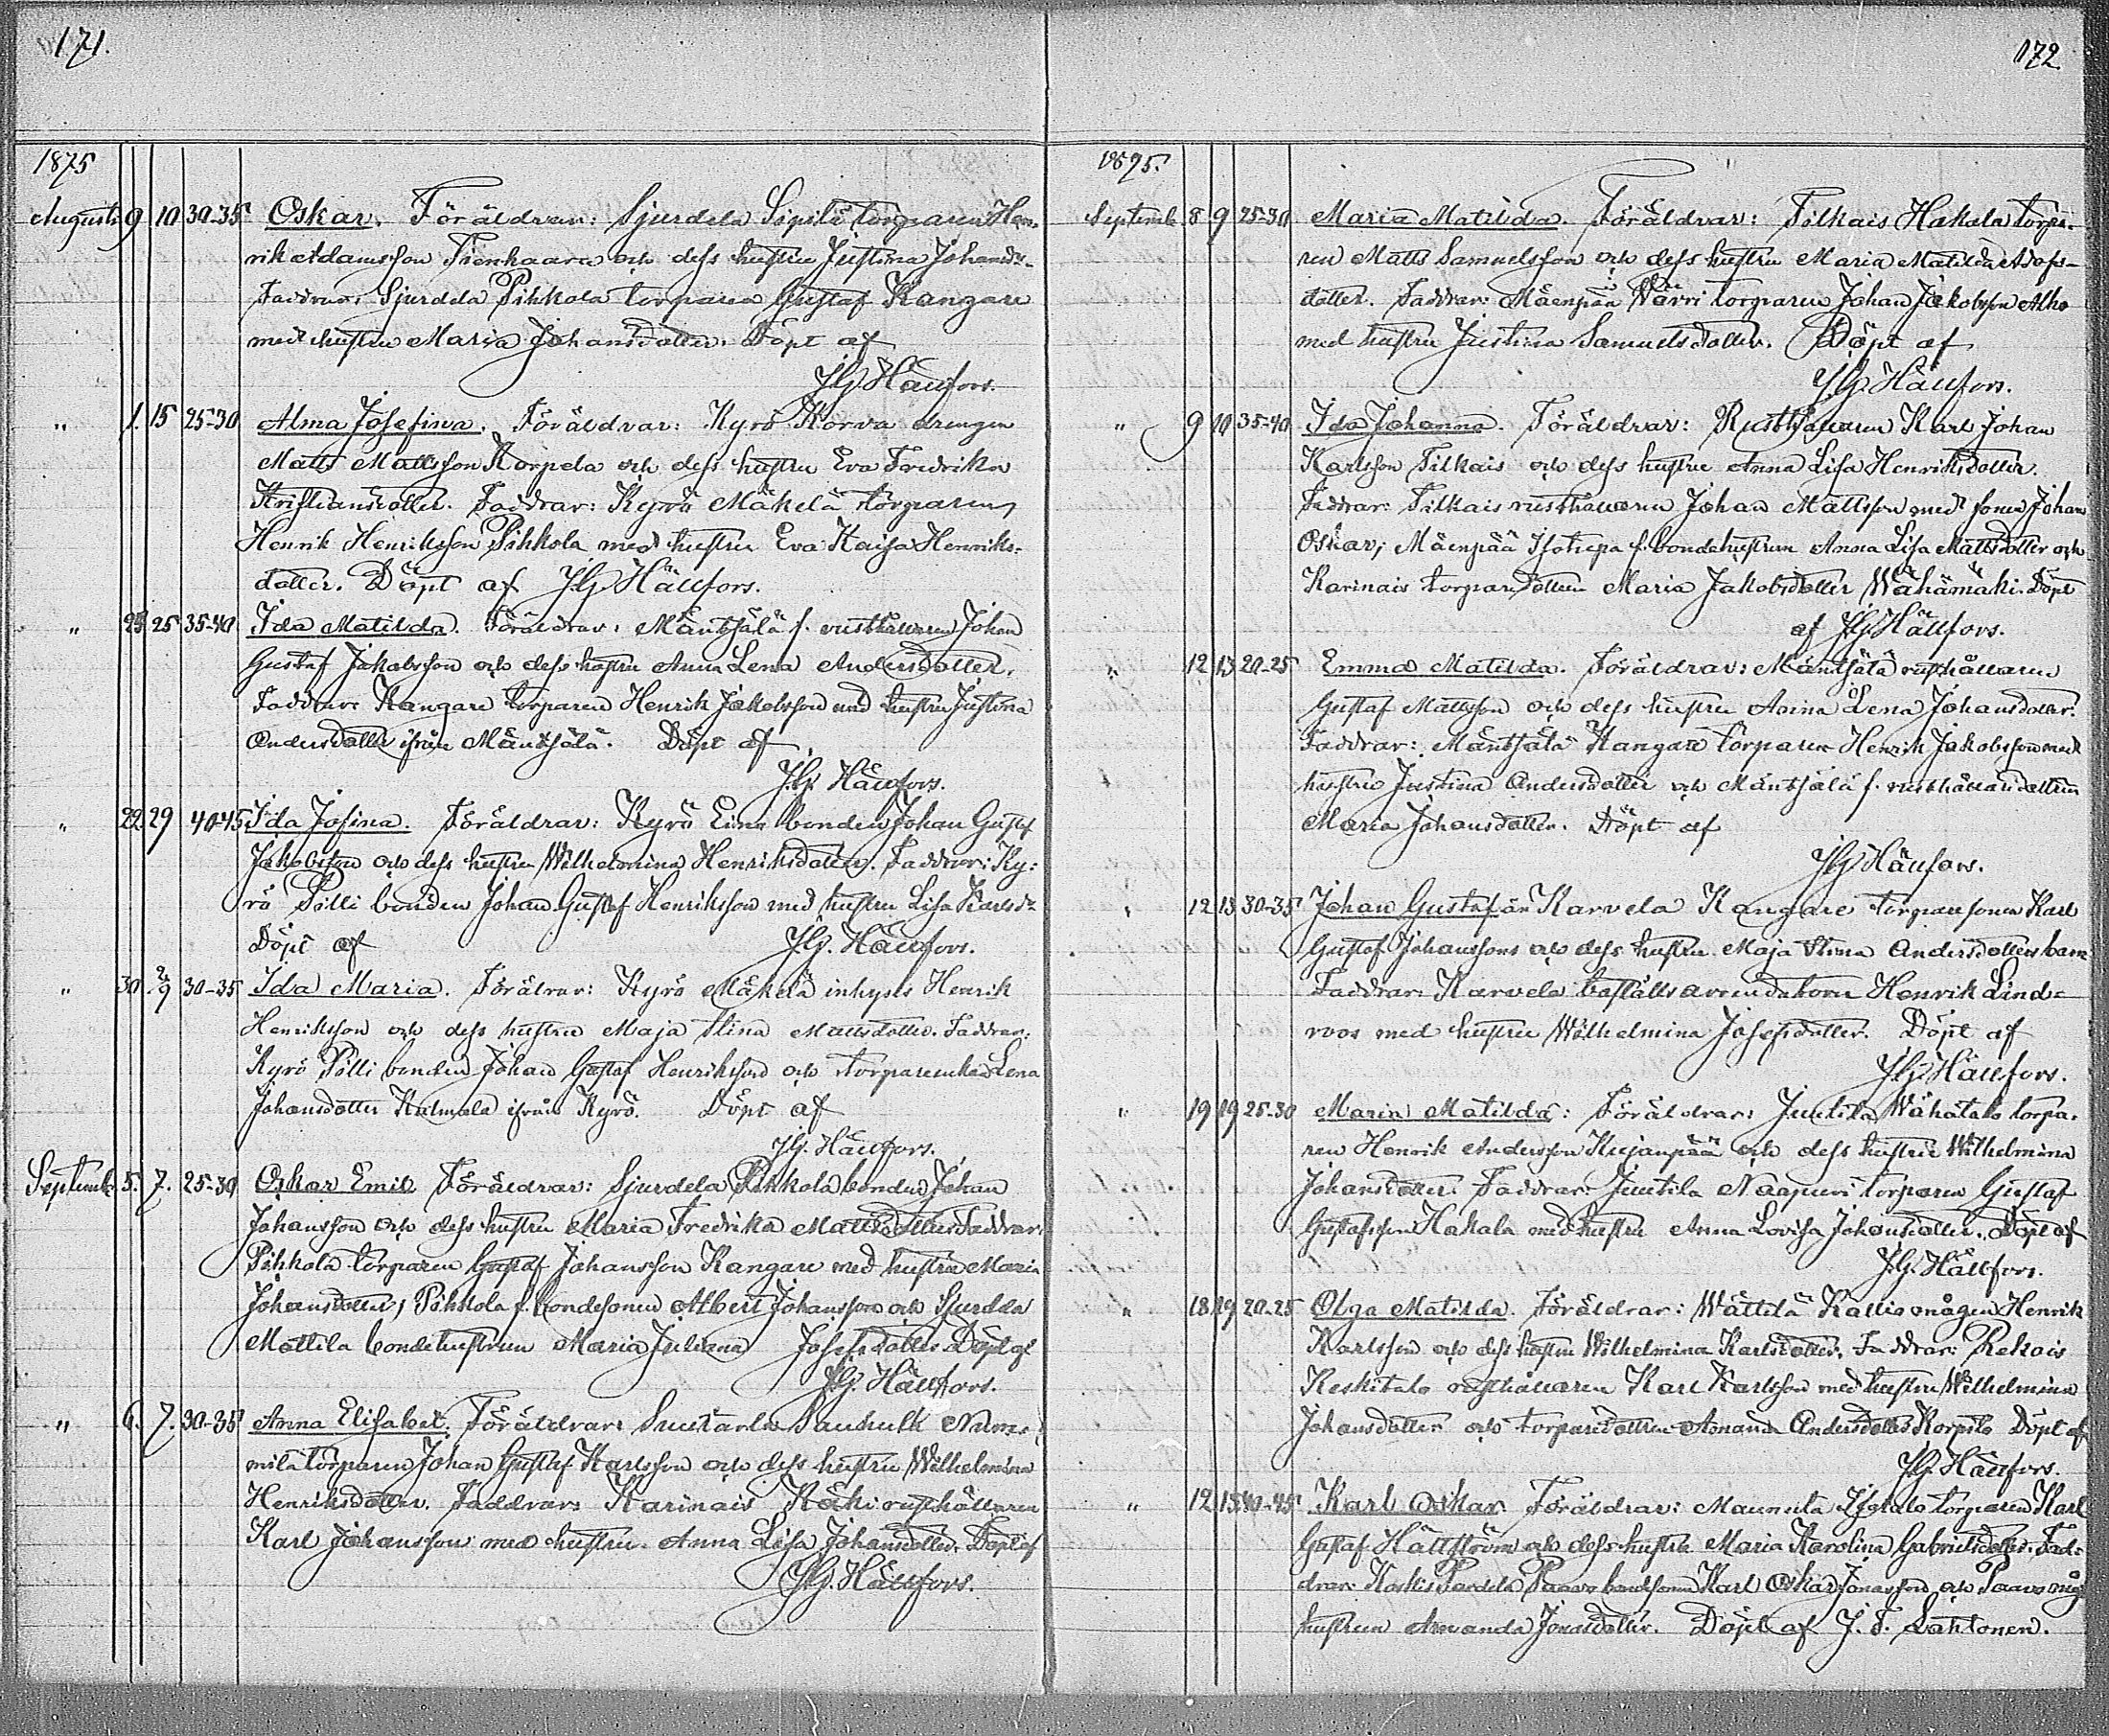 171.
1875
Augusti 9 10 30-35 Oskar. Föräldrar: Sjurdela Sipilä torparen Hen-
rik Adamsson Tienhaara och dess hustru Justina Johansd:
Faddrar: Sjurdela Pihkola torparen Gustaf Kangare
med hustru Maria Johansdotter. Döpt af
J.G. Hällfors.
" 1. 15 25-30 Alma Josefina. Föräldrar: Kyrö Korva drengen
Matts Mattsson Korpela och dess hustru Eva Fredrika
Kristiansdotter. Faddrar: Kyrö Mäkelä torparen
Henrik Henriksson Pihkola med hustru Eva Kaisa Henriks-
dotter. Döpt af J.G. Hällfors.
" 25 35-40 Ida Matilda. Föräldrar: Mäntsälä f. rusthållaren Johan
Gustaf Jakobsson och dess hustru Anna Lena Andersdotter.
Faddrar: Kangare torparen Henrik Jakobsson med hustru Justina
Andersdotter ifrån Mäntsälä. Döpt af
J.G. Hällfors.
" 22 29 40-45 Ida Josina. Föräldrar: Kyrö Eino bonden Johan Gustf
Jakobsson och dess hustru Wilhelmina Henriksdotter. Faddrar: Ky:
rö Pölli bonden Johan Gustaf Henriksson med hustru Lisa Karlsd:
Döpt af J.G. Hällfors.
" 30. 2/9 30-35 Ida Maria. Föräldrar: Kyrö Mäkelä inhyses Henrik
Henriksson och dess hustru Maja Stina Mattsdotter. Faddrar:
Kyrö Pölli bonden Johan Gustaf Henriksson och torparenkan Lena
Johansdotter Kulmala ifrån Kyrö. Döpt af
J.G. Hällfors.
Septemb. 5. 7. 25-30 Oskar Emil Föräldrar: Sjurdela Pihkola bonden Johan
Johansson och dess hustru Maria Fredrika Mattsdotter Faddrar:
Pihkola torparen Gustaf Johansson Kangare med hustru Maria
Johansdotter; Pihkola f. bondesonen Albert Johansson och Sjurdela
Mattila bondehustrun Maria Juliana Josefsdotter Döpt af
J.G. Hällfors.
" 6. 7. 30-35 Anna Elisabet. Föräldrar: Suutarla
torparen Johan Gustaf Karlsson och dess hustru Wilhelmina
Henriksdotter. Faddrar: Karinais Käki rusthållaren
Karl Johansson med hustru Anna Lisa Johansdotter. Döpt af
J.G. Hällfors.
172
1875.
Septemb. 8 9 25-30 Maria Matilda. Föräldrar: Tilkais Hakala torpa-
ren Matts Samuelsson och dess hustru Maria Matilda Adofs-
dotter. Faddrar: Mäenpää torparen Johan Jakobsson Alho
med hustru Justina Samuelsdotter. Döpt af
J.G. Hällfors.
" 9 10 35-40 Ida Johanna. Föräldrar: Rusthållaren Karl Johan
Karlsson Tilkais och dess hustru Anna Lisa Henriksdotter.
Faddrar: Tilkais rusthållaren Johan Mattsson med sonen Johan
Oskar; Mäenpää Isotupa f. bondehustrun Anna Lisa Mattsdotter och
Karinais torparedottren Maria Jakobsdotter Wähämäki. Döpt
af J.G. Hällfors.
" 12 13 20-25 Emma Matilda. Föräldrar: Mäntsälä rusthållaren
Gustaf Mattsson och dess hustru Anna Lena Johansdotter.
Faddrar: Mäntsälä Kangare torparen Henrik Jakobsson med
hustru Justina Andersdotter och Mäntsälä f. rusthållaredottren
Maria Johansdotter. Döpt af
J.G. Hällfors.
" 12 13 30-35 Johan Gustaf är Karvela Kangare torparesonen Karl
Gustaf Johanssons och dess hustru Maja Stina Andersdotters barn
Faddrar: Karvela boställsarrendatorn Henrik Lind-
roos med hustru Wilhelmina Josefsdotter. Döpt af
J.G. Hällfors.
" 19 19 25-30 Maria Matilda: Föräldrar: Juutila Wähätalo torpa-
ren Henrik Andersson Kujanpää och dess hustru Wilhelmina
Johansdotter. Faddrar: Juutila Naapuri torparen Gustaf
Gustafsson Hakala med hustru Anna Lovisa Johansdotter. Döpt af
J.G. Hällfors.
" 18 19 20-25 Olga Matilda. Föräldrar: Wättilä Kallio mågen Henrik
Karlsson och dess hustru Wilhelmina Karlsdotter. Faddrar: Rekois
Keskitalo rusthållaren Karl Karlsson med hustru Wilhelmina
Johansdotter och torparedottren Amanda Andersdotter Korpilo Döpt af
J.G. Hällfors.
" 12 15 40-45 Karl Oskar. Föräldrar: Maunula Isotalo torparen Karl
Gustaf Hällström och dess hustru Maria Karolina Gabrielsdotter. Fad-
drar: Koskis Paavo bondsonen Karl Oskar Jonasson och Paavo måg
hustrun Amanda Jonasdotter. Döpt af J. F. Lahtonen.